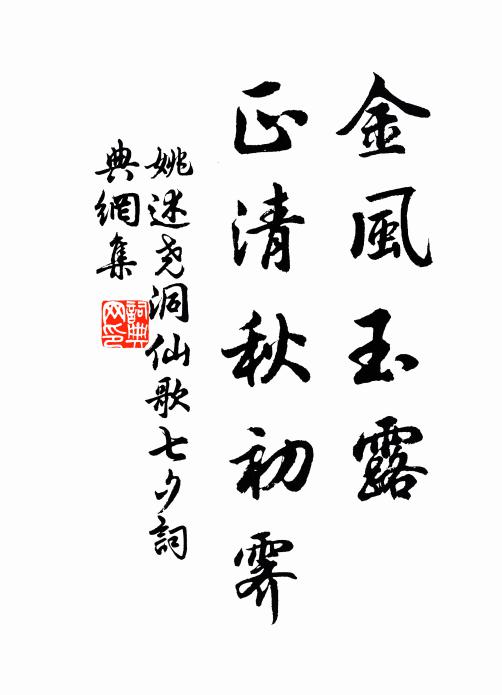 金風玉露
正清秋初霽
姚述堯洞仙歌七夕詞
典網集
詞典網印